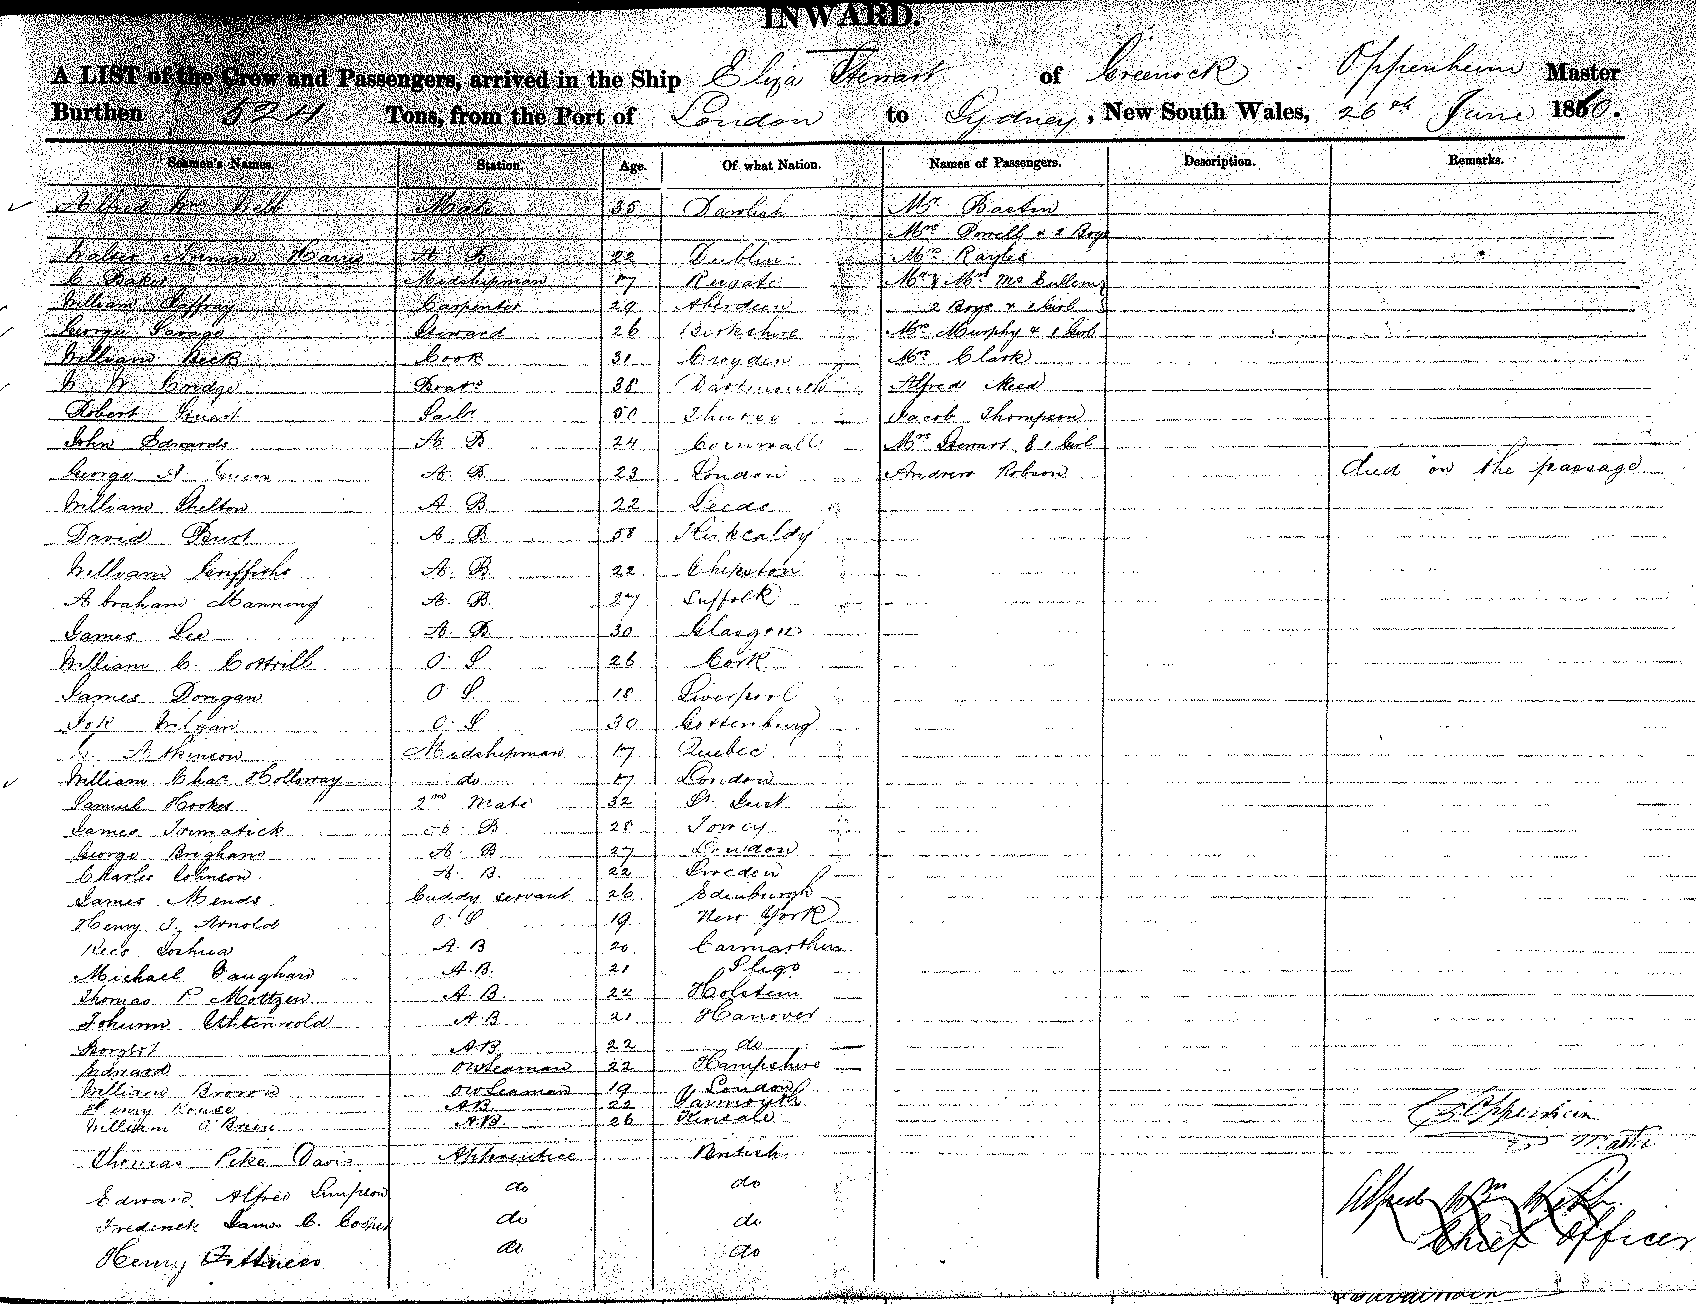 INWARD.
A LIST of the Crew and Passengers, arrived in the Ship Eliza Stewart of Greenock Oppenheim Master
Burthen 524 Tons, from the Port of London to Sydney, New South Wales, 26th June 1860.
Seamen's Names. Station. Age. Of what Nation. Names of Passengers. Description. Remarks.
Alfred Wm Mate 35 Mr Bastin
Mrs Powell & 2 Boys
Walter Harris A B 22 Dublin Mrs Rayles
C Baker Midshipman 17 Reigate Mr & Mrs Mc Cullem
William Jaffray Carpenter 29 Aberdeen 2 Boys & 1 Girl
George Steward 26 Berkshire Mrs Murphy & 1 Girl
William Beck Cook 31 Croyden Mr Clark
Boats 38 Dartmouth Alfred Meed
Robert Sailr 50 Jacob Thompson
John Edwards A B 24 Cornwall Mrs Stewart & 1 Girl
George A B 23 London Andrew Robson died on the passage
William Shelton A B 22 Leeds
David Burt A B 58 Kirkcaldy
William Griffiths A B 22 Chepstow
Abraham Manning A B 27 Suffolk
James Lee A B 30 Glasgow
William C. Cottrill O S 26 Cork
James Dongan O S 18 Liverpool
O S 30 Gottenburg
Atkinson Midshipman 17 Quebec
William Chas Holloway do 17 London
Samuel Hooker 2nd Mate 32
James A B 28 Fowey
George Brigham A B 27 London
Charles Johnson A. B. 22 Sweden
James Mends Cuddy servant 26 Edinburgh
Henry J. Arnold O S 19 New York
Rees Joshua A B 20 Carmarthen
Michael Vaughan A.B. 21 Sligo
Thomas P Mottzen A B 22 Holstein
Johann A B 21 Hanover
A B 22 do
Edward OrdSeaman 22 Hampshire
William Brown OrdSeaman 19 London
Henry Rouse AB 22 Yarmouth
William O'Brien AB 26 Kinsale
Oppenheim
Master
Thomas Pike Davis Apprentice British
Edward Alfred Simpson do do
Frederick James C. Cooper do do
Alfred Wm
Chief Officer
Henry do do